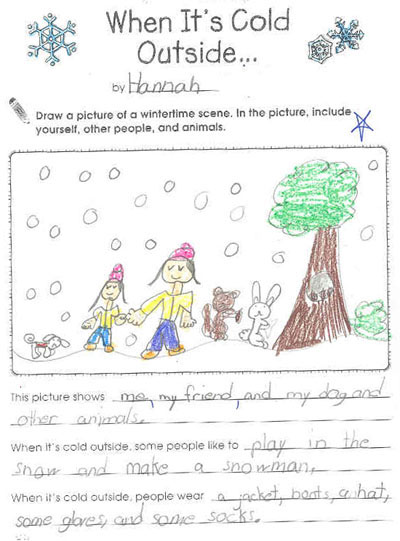 When It's Cold
Outside...
by Hannah
Draw a picture of a wintertime scene. In the picture, include
yourself, other people, and animals.
This picture shows me, my friend, and my dog and
other animals.
When it's cold outside, some people like to play in the
snow and make a snowman.
When it's cold outside, people wear a jacket, boots, a hat,
some gloves, and some socks.